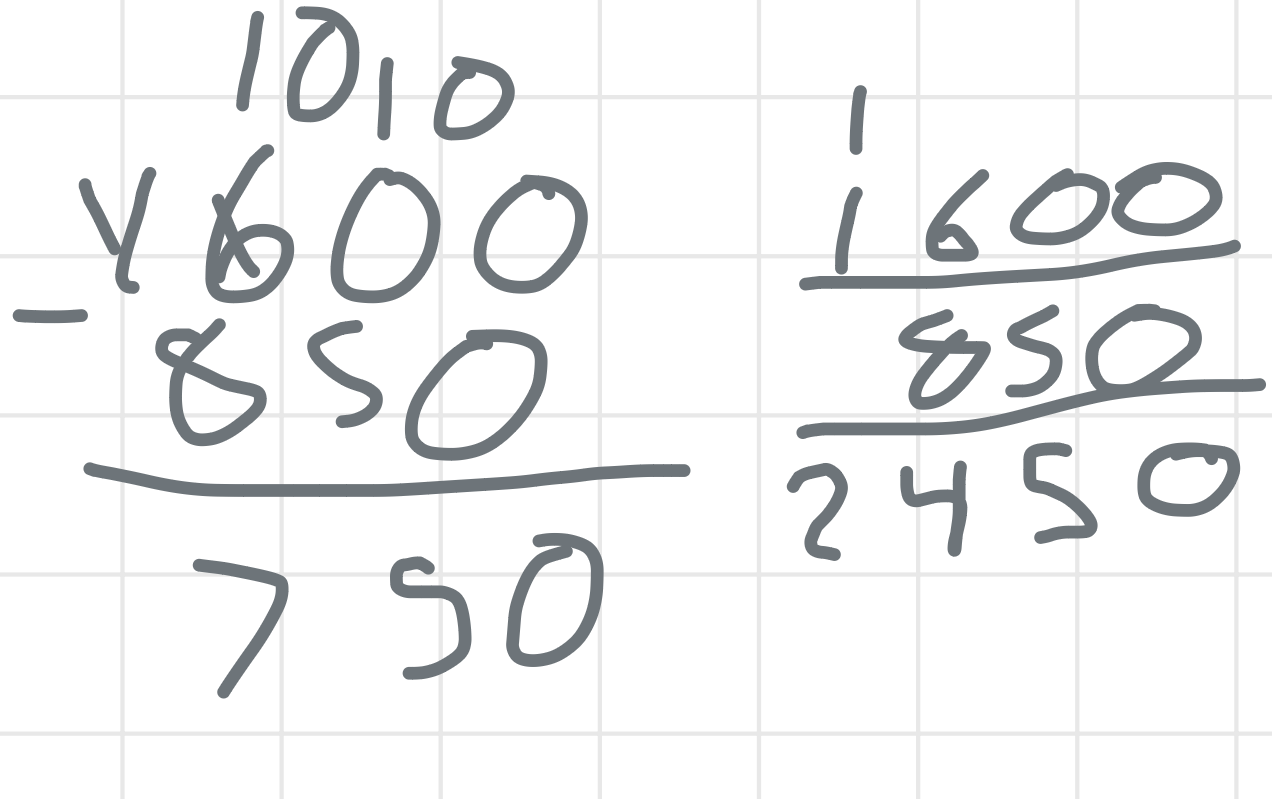 10 10
1600
- 850
750
1
1600
850
2450